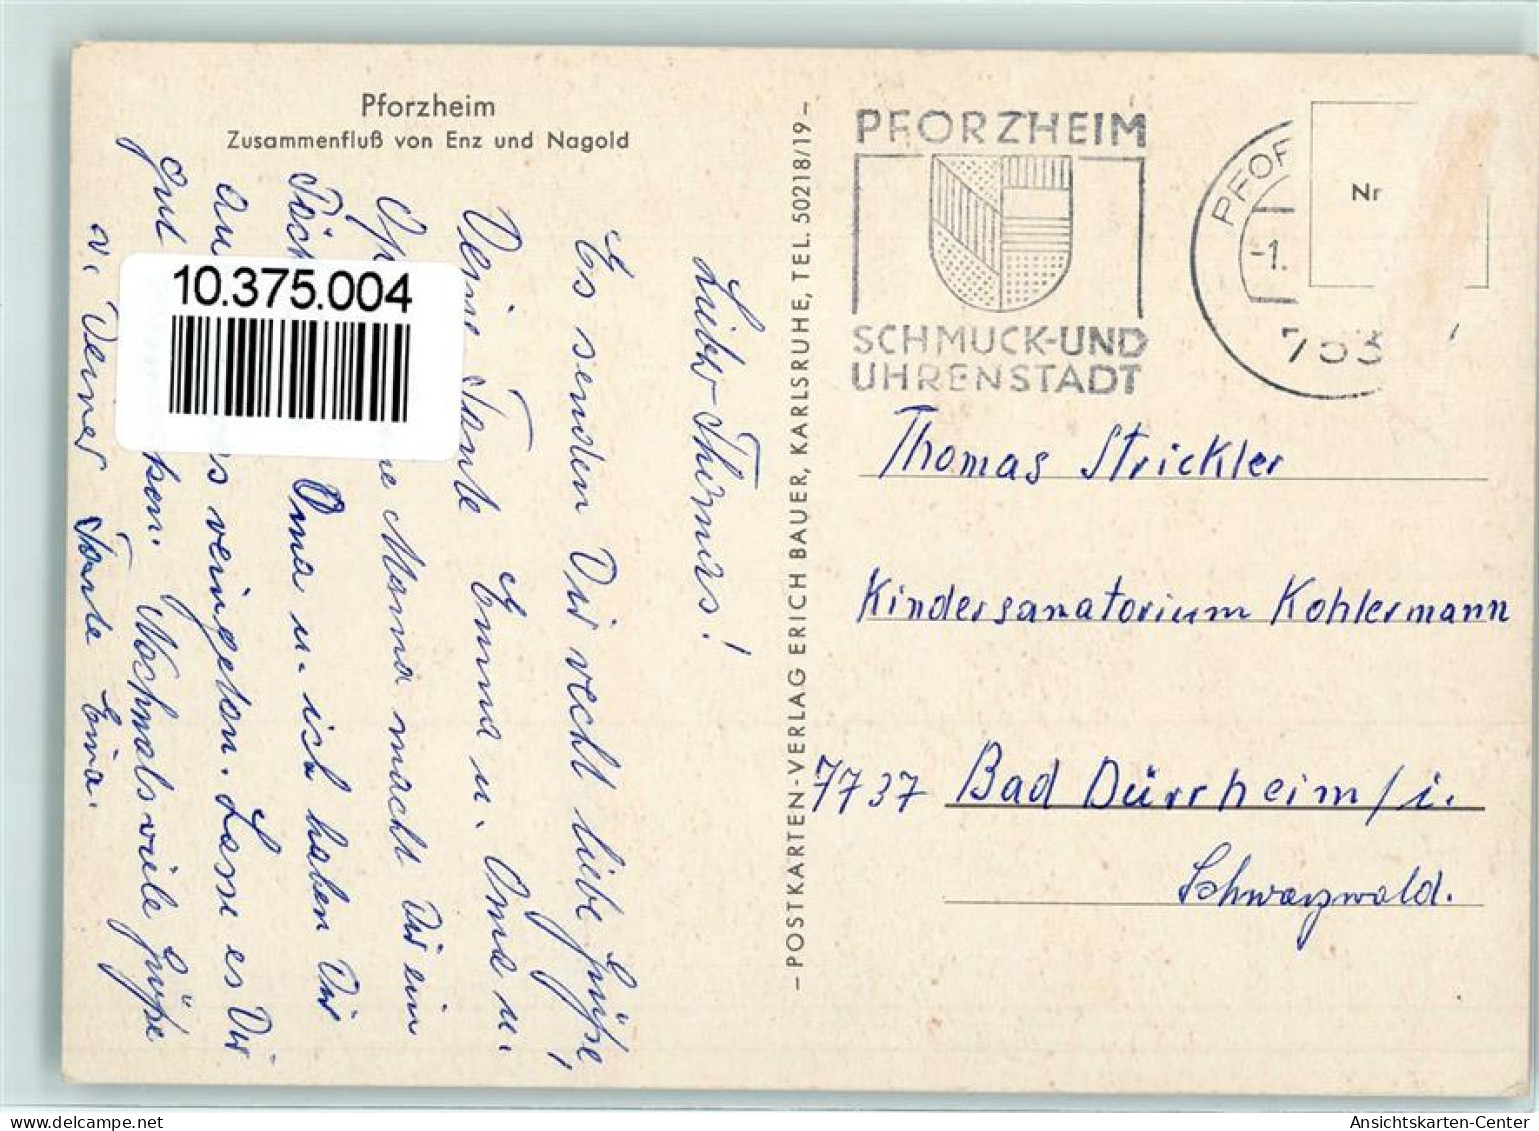 Pforzheim
Zusammenfluß von Enz und Nagold
Lieber Thomas!
Es senden Dir recht liebe Grüße,
Deine Tante Emma u. Oma u.
Op Mama macht Dir ein
Päck Oma u. ich haben Dir
au s reingetan. Lasse es Dir
gut ken. Nochmals viele Grüße
v. Deiner Tante Emma.
10.375.004
– POSTKARTEN-VERLAG ERICH BAUER, KARLSRUHE, TEL. 50218/19 –
PFORZHEIM
SCHMUCK-UND
UHRENSTADT
PFOR
-1.
753
Nr
Thomas Strickler
Kindersanatorium Kohlermann
7737 Bad Dürrheim/i.
Schwarzwald.
Ansichtskarten-Center